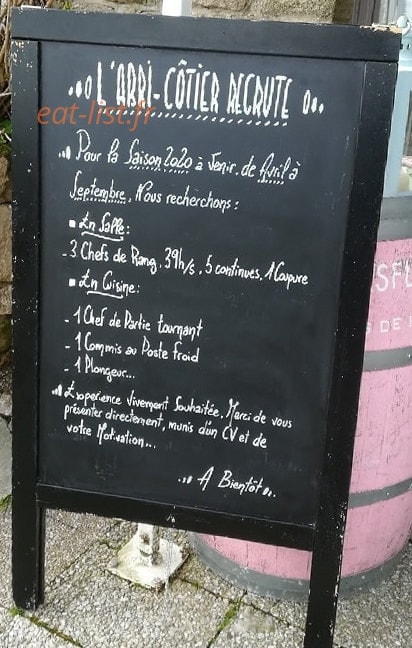 L'ABRI-CÔTIER RECRUTE
eat-list.fr
Pour la Saison 2020 à venir. de Avril à
Septembre, Nous recherchons :
En Salle :
- 3 Chefs de Rang. 39h/s, 5 continues. 1 Coupure
En Cuisine :
- 1 Chef de Partie tournant
- 1 Commis au Poste froid
- 1 Plongeur...
Experience Vivement Souhaitée. Merci de vous
présenter directement, munis d'un CV et de
votre Motivation...
A Bientôt...